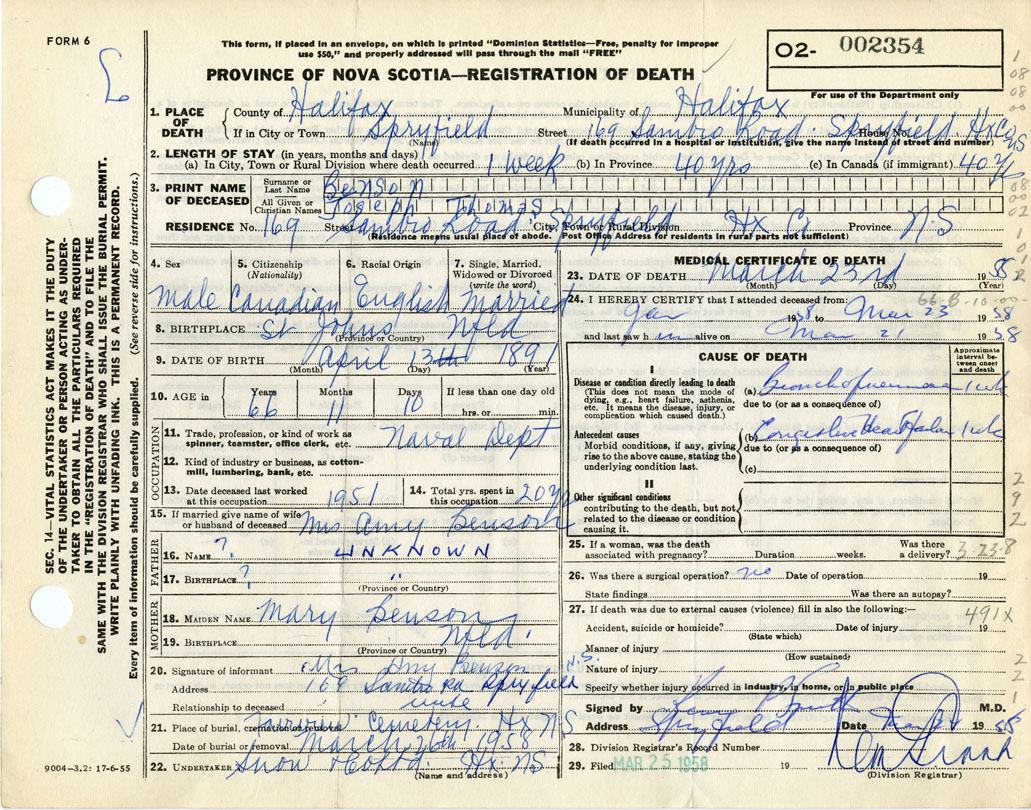 FORM 6
This form, if placed in an envelope, on which is printed "Dominion Statistics—Free, penalty for improper
use $50," and properly addressed will pass through the mail "FREE"
PROVINCE OF NOVA SCOTIA—REGISTRATION OF DEATH
02- 002354
For use of the Department only
SEC. 14—VITAL STATISTICS ACT MAKES IT THE DUTY
OF THE UNDERTAKER OR PERSON ACTING AS UNDER-
TAKER TO OBTAIN ALL THE PARTICULARS REQUIRED
IN THE "REGISTRATION OF DEATH" AND TO FILE THE
SAME WITH THE DIVISION REGISTRAR WHO SHALL ISSUE THE BURIAL PERMIT.
WRITE PLAINLY WITH UNFADING INK. THIS IS A PERMANENT RECORD.
Every item of information should be carefully supplied. (See reverse side for instructions.)
1. PLACE OF DEATH County of Halifax Municipality of Halifax
If in City or Town Spryfield Street 169 Sambro Road Spryfield Hx Co NS House No.
(Name) (If death occurred in a hospital or institution, give the name instead of street and number)
2. LENGTH OF STAY (in years, months and days)
(a) In City, Town or Rural Division where death occurred 1 week (b) In Province 40 yrs (c) In Canada (if immigrant) 40 yrs
3. PRINT NAME OF DECEASED Surname or Last Name Benson
All Given or Christian Names Joseph Thomas
RESIDENCE No. 169 Street Sambro Road Spryfield City, Town or Rural Division Hx Co Province N.S
(Residence means usual place of abode. Post Office Address for residents in rural parts not sufficient)
4. Sex Male
5. Citizenship (Nationality) Canadian
6. Racial Origin English
7. Single, Married, Widowed or Divorced (write the word) Married
8. BIRTHPLACE St Johns Nfld
(Province or Country)
9. DATE OF BIRTH April 13th 1891
(Month) (Day) (Year)
10. AGE in Years 66 Months 11 Days 10 If less than one day old
hrs. or min.
OCCUPATION
11. Trade, profession, or kind of work as spinner, teamster, office clerk, etc. Naval Dept
12. Kind of industry or business, as cotton-mill, lumbering, bank, etc.
13. Date deceased last worked at this occupation 1951 14. Total yrs. spent in this occupation 20 yrs
15. If married give name of wife or husband of deceased Mrs Amy Benson
FATHER
16. NAME ? UNKNOWN
17. BIRTHPLACE ? "
(Province or Country)
MOTHER
18. MAIDEN NAME Mary Benson
19. BIRTHPLACE Nfld.
(Province or Country)
20. Signature of informant Mrs Amy Benson
Address 169 Sambro Rd Spryfield N.S.
Relationship to deceased wife
21. Place of burial, cremation or removal Fairview Cemetery Hx NS
Date of burial or removal March 26th 1958
22. UNDERTAKER Snow & Co Ltd. Hx. NS
(Name and address)
9004-3.2: 17-6-55
MEDICAL CERTIFICATE OF DEATH
23. DATE OF DEATH March 23rd 1958
(Month) (Day) (Year)
24. I HEREBY CERTIFY that I attended deceased from: 66-8-10-00
Jan 1958 to Mar 23 1958
and last saw him alive on Mar 21 1958
CAUSE OF DEATH
Approximate interval between onset and death
I
Disease or condition directly leading to death
(This does not mean the mode of dying, e.g., heart failure, asthenia, etc. It means the disease, injury, or complication which caused death.)
(a) Bronchopneumonia 1 wk
due to (or as a consequence of)
Antecedent causes
Morbid conditions, if any, giving rise to the above cause, stating the underlying condition last.
(b) Congestive Heart Failure 1 wk
due to (or as a consequence of)
(c)
II
Other significant conditions
contributing to the death, but not related to the disease or condition causing it.
25. If a woman, was the death associated with pregnancy? Duration weeks. Was there a delivery? 3-23-8
26. Was there a surgical operation? no Date of operation 19
State findings Was there an autopsy?
27. If death was due to external causes (violence) fill in also the following:—
491X
Accident, suicide or homicide? Date of injury 19
(State which)
Manner of injury
(How sustained)
Nature of injury
Specify whether injury occurred in industry, in home, or in public place
Signed by M.D.
Address Spryfield Date 1958
28. Division Registrar's Record Number
29. Filed MAR 25 1958 19
(Division Registrar)